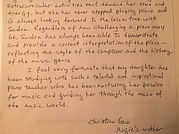 extracurricular activities that demand her time and
energy, but she has never stopped playing piano and
is always looking forward to the lesson time with
Sudra. Regardless of how challenging a piece may
be, Sudra has always been able to demonstrate
and provide a correct interpretation of the piece -
reflecting the style of the composer and the history
of the music genre.
I feel very fortunate that my daughter has
been studying with such a talented and inspirational
piano teacher who has been nurturing her passion
for music and guiding her through the maze of
the music world.
Christina Guo
mother